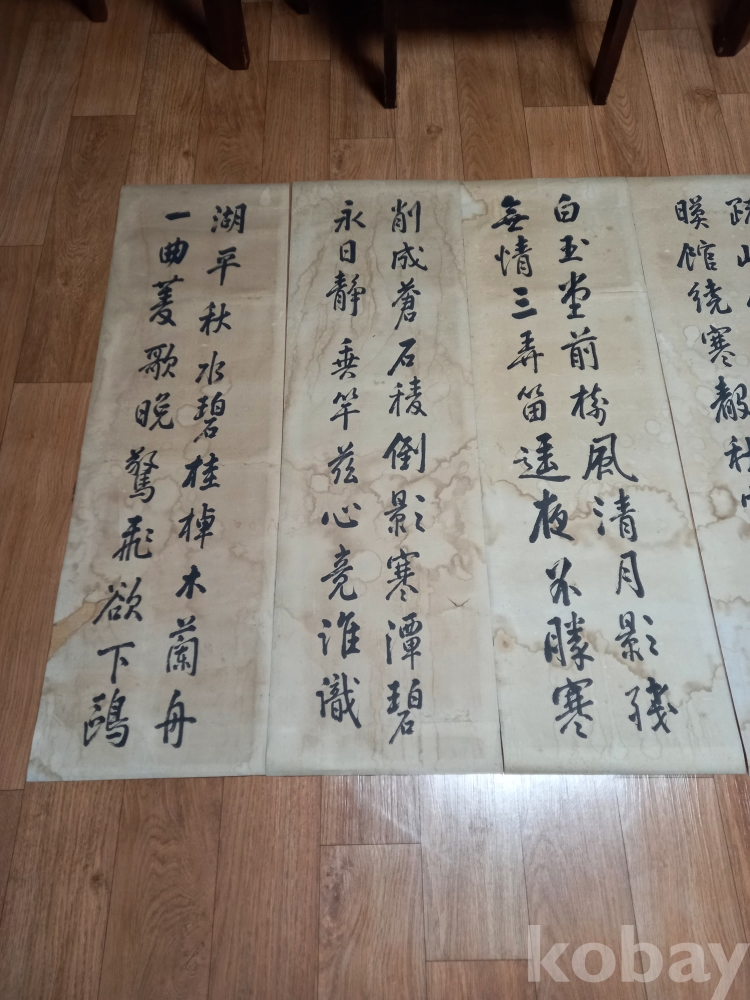 疏山
暎館繞寒聲秋
白玉堂前樹風清月影殘
無情三弄笛遥夜不勝寒
削成蒼石稜倒影寒潭碧
永日靜垂竿茲心竟誰識
湖平秋水碧桂棹木蘭舟
一曲菱歌晚驚飛欲下鷗
kobay